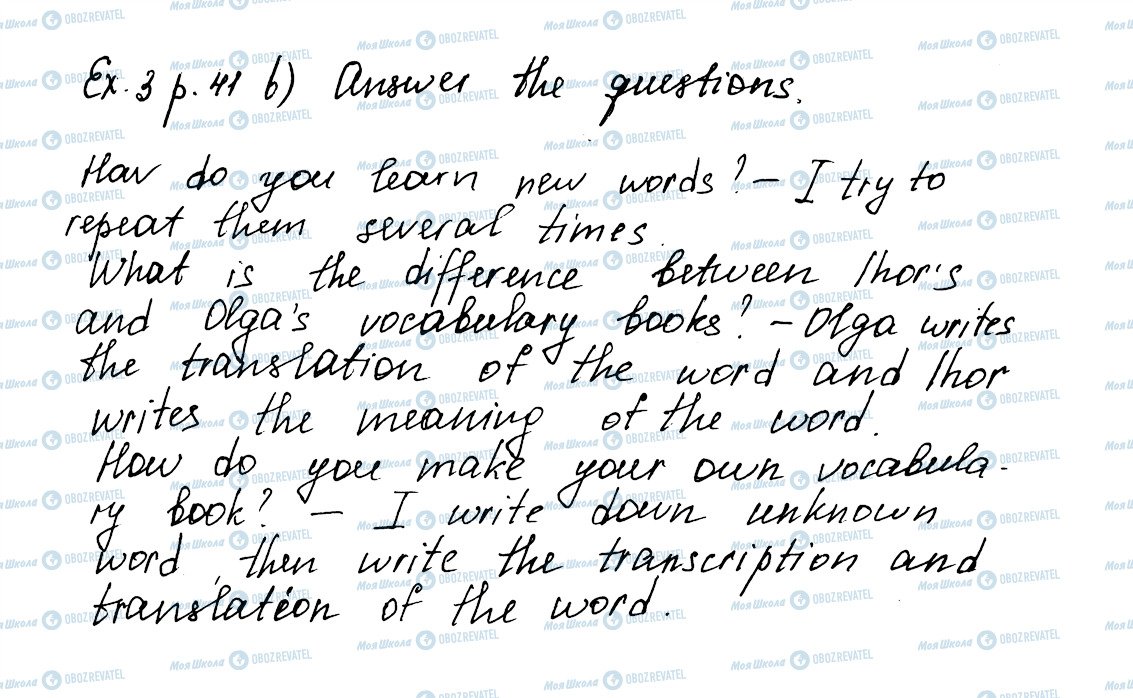 Ex. 3 p. 41 b) Answer the questions.
How do you learn new words? – I try to
repeat them several times.
What is the difference between Ihor's
and Olga's vocabulary books? – Olga writes
the translation of the word and Ihor
writes the meaning of the word.
How do you make your own vocabula-
ry book? – I write down unknown
word, then write the transcription and
translation of the word.